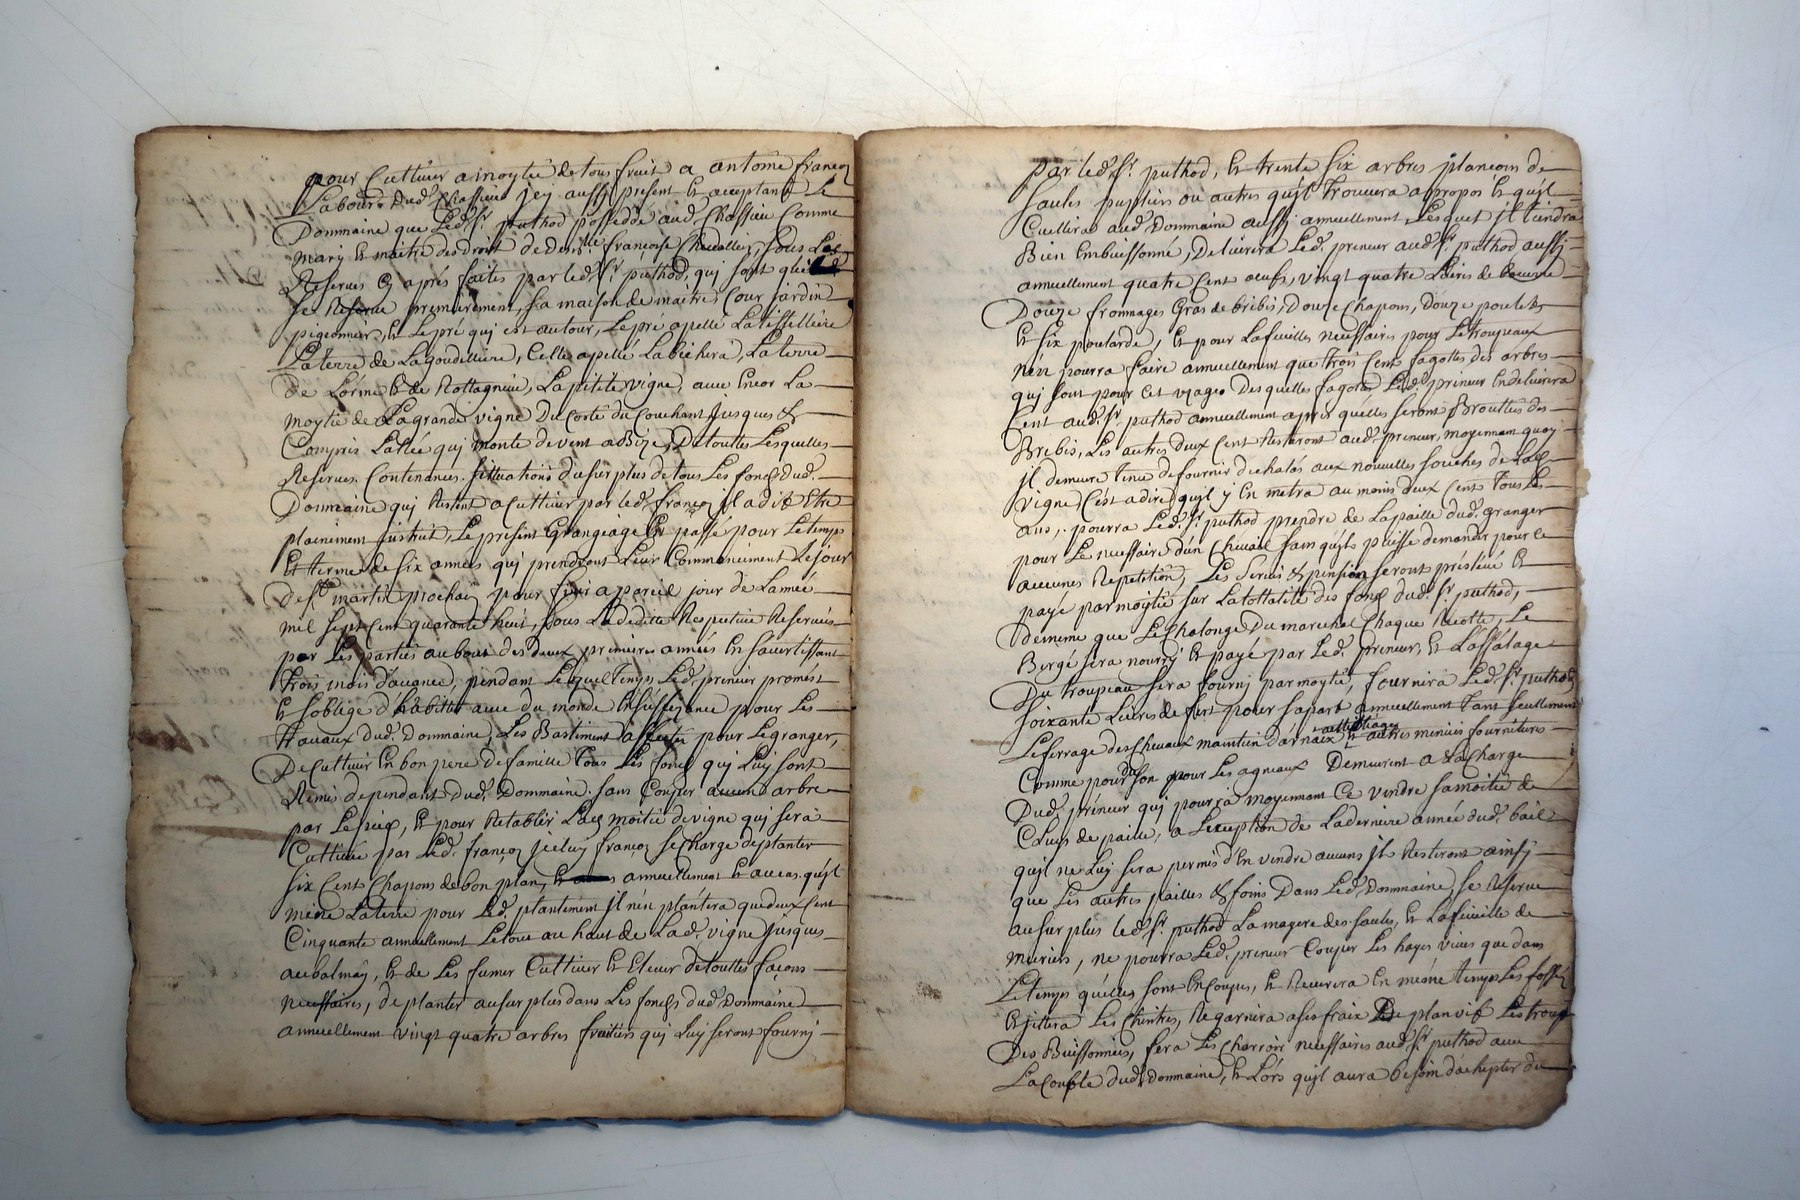 pour Cultiver a moytié de tous fruit a antoine françoy
Laboureur dud. Chassieu jcy aussy présent et acceptant Le
Dommaine que Led. Sr. puthod possedde aud. Chassieu Comme
mary et maitre des droit de demlle françoise Chevallier, sous Les
Reserves cy aprés faites par led. Sr. puthod, qui sont quil
se Reserve premierement, sa maison de maitre Cour jardin
pigeonnier, et Le pré qui est autour, Le pré apellé La
La terre de La goudelliere, Celle apellé La bichera, La terre
De L'orme et de La petite vigne, avec Encor La
moytié de La grande vigne Du Costé du Couchant jusques &
Compris L'allée qui monte de vent a Bize, De touttes Lesquelles
Reserves Contenances situations du surplus de tous Les fonds dud.
Dommaine qui Restent a Cultiver par led. françoy il a dit Etre
plainement instruit, Le présent Grangeage Est passé pour Le temps
Et terme de six années qui prendront Leur Commencement Le jour
De St. martin prochain pour finir a pareil jour de L'année
mil sept Cent quarante huit, sous La déditte Respective Reservée
par Les parties au bout des deux premieres années En s'avertissant
trois mois d'avance, pendant Lequel Temps Led. preneur promêt
et s'oblige d'habitter avec du monde En suffisance pour Les
travaux dud. Dommaine, Les Bastiment pour Le granger,
De Cultiver En bon pere de famille Tous Les fonds qui Luy sont
Remis dependant Dud. Dommaine sans Couper aucuns arbre
par Le pied, et pour Retablir La moitié de vigne qui sera
Cultivée par Led. françoy jceluy françoy se Charge de planter
six Cent Chapons de bon plan, annuellement et au cas quîl
La terre pour Led. plantement jl n'en plantera que deux Cent
Cinquante annuellement Le tout au haut de Lad. vigne jusques
et de Les fumer Cultiver et Elever de touttes façons
necessaires, de planter au surplus dans Les fonds dud. Dommaine
annuellement vingt quatre arbres fruitiers qui Luy seront fourny
par led. Sr. puthod, et trente six arbres plançon de
saules puppliers ou autres quîl trouvera a propos et quîl
Cueillira aud. Dommaine aussy annuellement Lesquels jl tiendra
Bien Embuissonné, Delivrera Led. preneur aud. Sr. puthod aussy
annuellement quatre Cent oeufs, vingt quatre Livres de beurre
Douze frommages Gras de brebis, Douze Chapons, Douze poulets
et six poularde, et pour La feuilles necessaires pour Le troupeaux
n'en pourra faire annuellement que trois Cent fagottes des arbres
qui sont pour Cet usages Desquelles fagotes Led. preneur En delivrera
Cent aud. Sr. puthod annuellement aprés qu'elles seront Brouttées des
Brebis, Les autres deux Cent Resteront aud. preneur, moyennant quoy
jl demeure Tenu de fournir d'echalas aux nouvelles souches de Lad.
vigne C'est a dire quîl y En metra au moins deux Cent Tous Les
ans, pourra Led. Sr. puthod prendre de La paille dud. granger
pour Le necessaire d'un Cheval sans quîl puisse demander pour Ce
aucunes Repetition, Les Servis & pension seront préslévé et
payé par moytié sur La tottalitté des fonds dud. Sr. puthod,
demême que Le Du marechal Chaque Recolte, Le
Bergé sera nourry et payé par Led. preneur, et L'assalage
Du troupeau sera fourny par moytié, fournira Led. Sr. puthod
soixante Livres de fert pour sa part annuellement Tant seullement
Le ferrage des Chevaux maintien d'arnaix attellages et autres menües fournitures
Comme pour du son pour Les agneaux Demeurent a La Charge
Dud. preneur qui pourra moyennant Ce vendre sa moitié de
de paille, a L'exception de La derniere année dud. bail
quîl ne Luy sera permis d'En vendre aucuns jls Resteront ainsy
que Les autres pailles & foins Dans Led. Dommaine, se Reserve
au surplus led. Sr. puthod La des saules, et La feüille de
muriers, ne pourra Led. preneur Couper Les hayes vives que dans
Le temps qu'elles sont En Coupes, et Recurera En même temps Les fossés
et jettera Les Chintres, Regarnira a ses fraix De plan vif Les trous
Des Buissonnées, fera Les Charrois necessaires aud. Sr. puthod avec
La Couble dud. Dommaine, et Lors quîl aura besoin d'achepter du